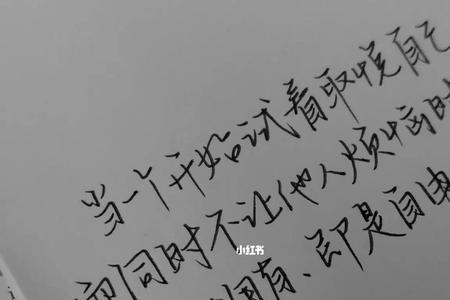 当一个开始试着取悦自己
同时不让他人烦恼时
拥有、即是自由
小红书